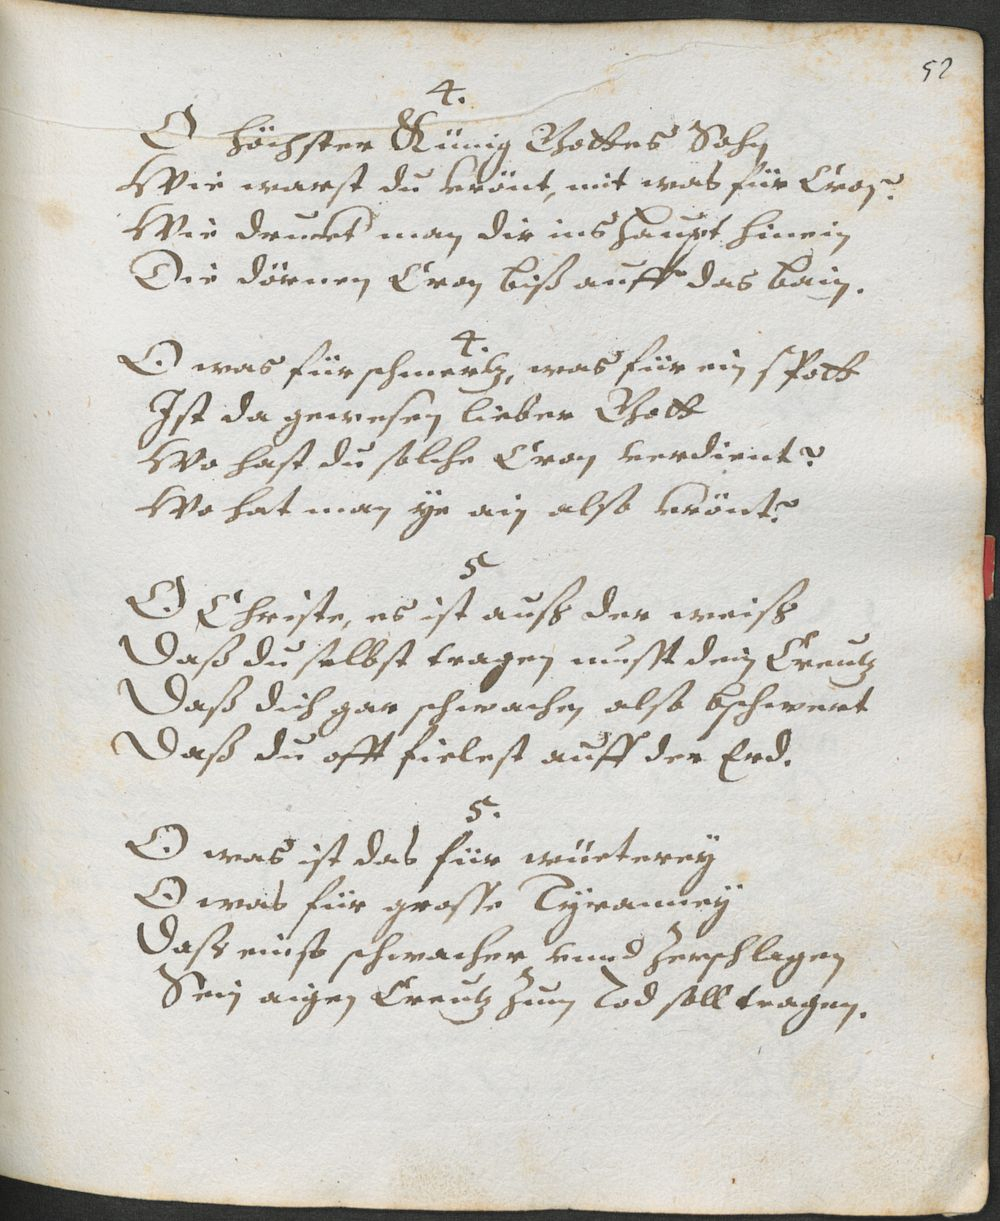 52
4.
O höchster Künig Gottes Sohn
Wie warst du krönt, mit was für Cron?
Wie druckt man dir ins haupt hinein
Die dörnen Cron biß auff das bain.
4.
O was für schmertz, was für ein spott
Ist da gewesen lieber Gott
Wo hast du solche Cron verdient?
Wo hat man ye ain also krönt?
5
O Christe, es ist auß der weiß
Daß du selbst tragen must dein Creutz
Daß dich gar schwachen also bschwert
Daß du offt fielest auff der Erd.
5.
O was ist das für wüeterey
O was für grosse Tyranney
Daß einer schwacher vnnd zerschlagen
Sein aigen Creutz zum Tod soll tragen.